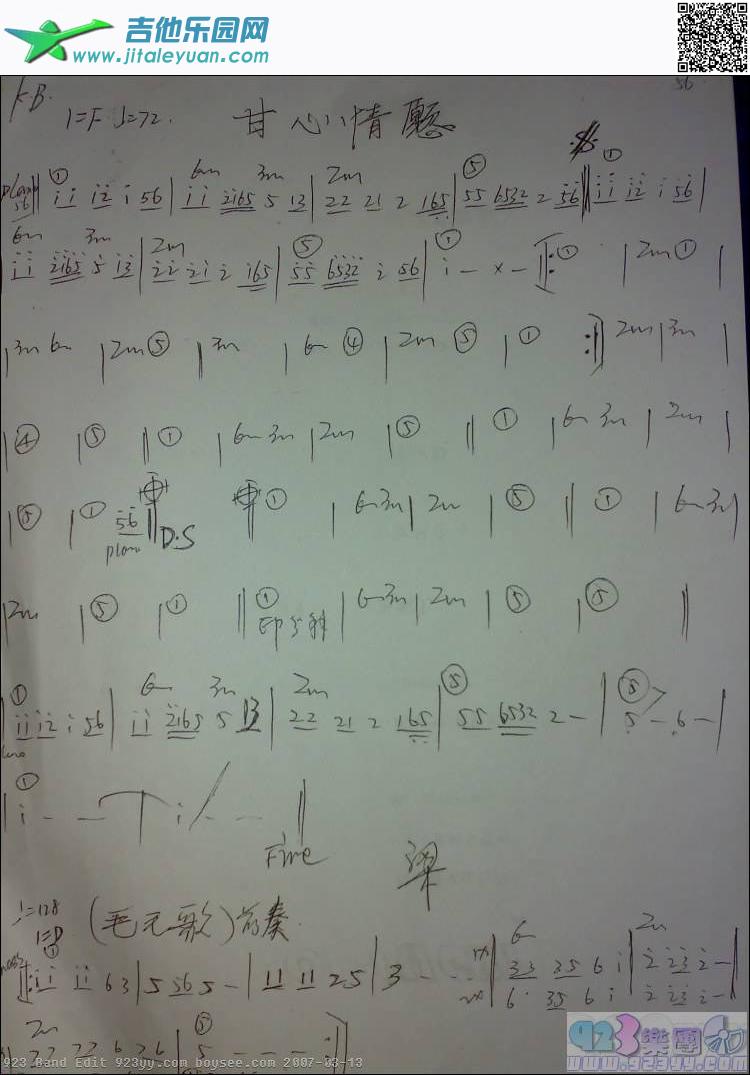 吉他乐园网
www.jitaleyuan.com
56
K.B.
1=F ♩=72. 甘心情願
56 || i i i2 i 56 | i i 2165 5 13 | 22 21 2 165 | 55 6532 2 56 || i i i2 i 56 |
6m 3m 2m ⑤
i i 2165 5 13 | 22 21 2 165 | 55 6532 2 56 | i - x - ||: ① | 2m ① |
| 3m 6m | 2m ⑤ || 3m | 6m ④ | 2m ⑤ | ① :|| 2m | 3m |
| ④ | ⑤ || ① | 6m 3m | 2m | ⑤ || ① | 6m 3m | 2m |
| ⑤ | ① 56 || D.S || ① | 6m 3m | 2m | ⑤ || ① | 6m 3m |
piano
| 2m | ⑤ | ① || ① | 6m 3m | 2m | ⑤ | ⑤ ||
① 6m 3m 2m ⑤ ⑤
| i i i2 i 56 | i i 2165 5 13 | 22 21 2 165 | 55 6532 2 - | 5 - 6 - |
①
| i - - | i - - ||
Fine
♩=128 (毛毛歌)前奏
1=D
①
||: i i i i 6 3 | 5 56 5 - | 11 11 2 5 | 3 - - - | 33 35 6 i | 2 23 2 - |
6 · 35 6 i 2 23 2 -
2m ⑤
| 22 22 6 36 | 5 - - - :||
923 Band Edit 923yy.com boysee.com 2007-03-13
923樂團
www.923yy.com